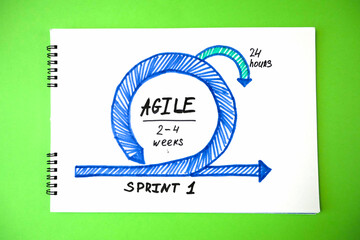 24
hours
AGILE
2-4
weeks
SPRINT 1